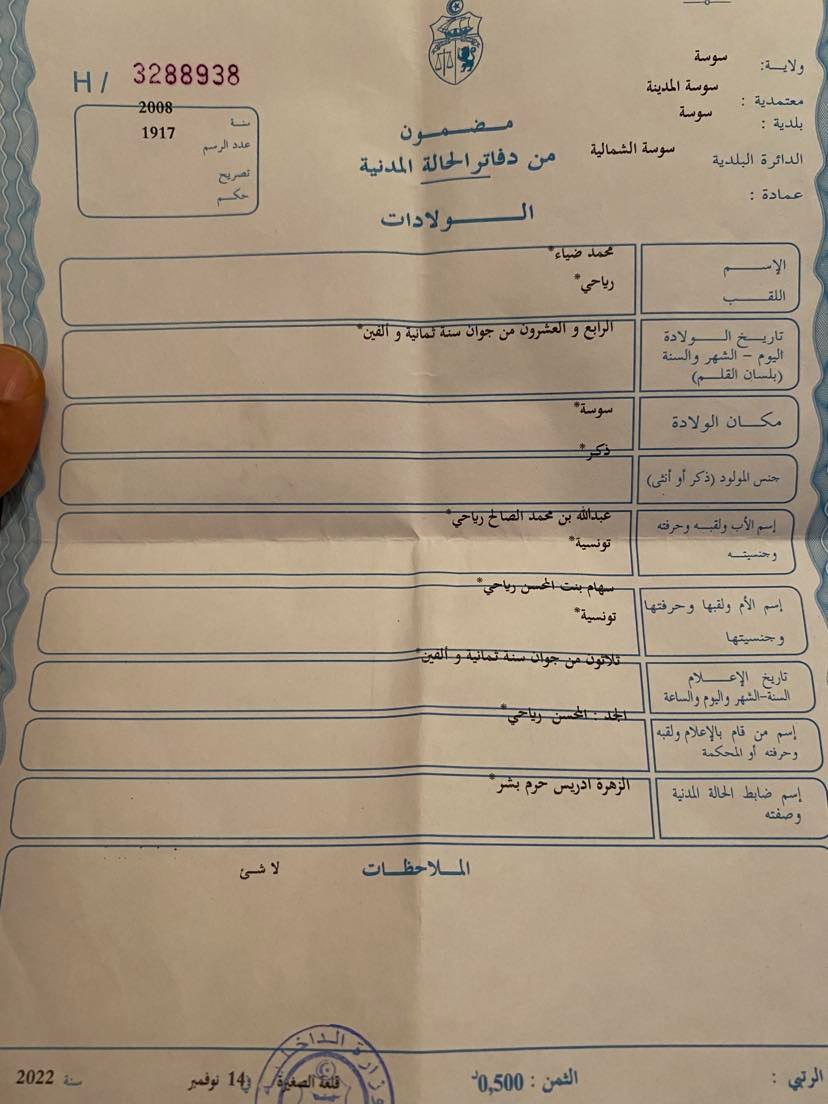 ولاية: سوسة
معتمدية : سوسة المدينة
بلدية : سوسة
الدائرة البلدية سوسة الشمالية
عمادة :
H / 3288938
سنة 2008
عدد الرسم 1917
تصريح
حكم
مضمون
من دفاتر الحالة المدنية
الولادات
الإسم محمد ضياء*
اللقب رياحي*
تاريخ الولادة الرابع و العشرون من جوان سنة ثمانية و ألفين*
اليوم - الشهر والسنة
(بلسان القلم)
مكان الولادة سوسة*
جنس المولود (ذكر أو أنثى) ذكر*
إسم الأب ولقبه وحرفته عبدالله بن محمد الصالح رياحي*
وجنسيته تونسية*
إسم الأم ولقبها وحرفتها سهام بنت المحسن رياحي*
وجنسيتها تونسية*
تاريخ الإعلام ثلاثون من جوان سنة ثمانية و ألفين*
السنة-الشهر واليوم والساعة
إسم من قام بالإعلام ولقبه الجد : المحسن رياحي*
وحرفته أو المحكمة
إسم ضابط الحالة المدنية الزهرة ادريس حرم بشر*
وصفته
الملاحظات
لا شئ
وزارة الداخلية
الرتبي : الثمن : 0,500د قلعة الصغيرة في 14 نوفمبر سنة 2022